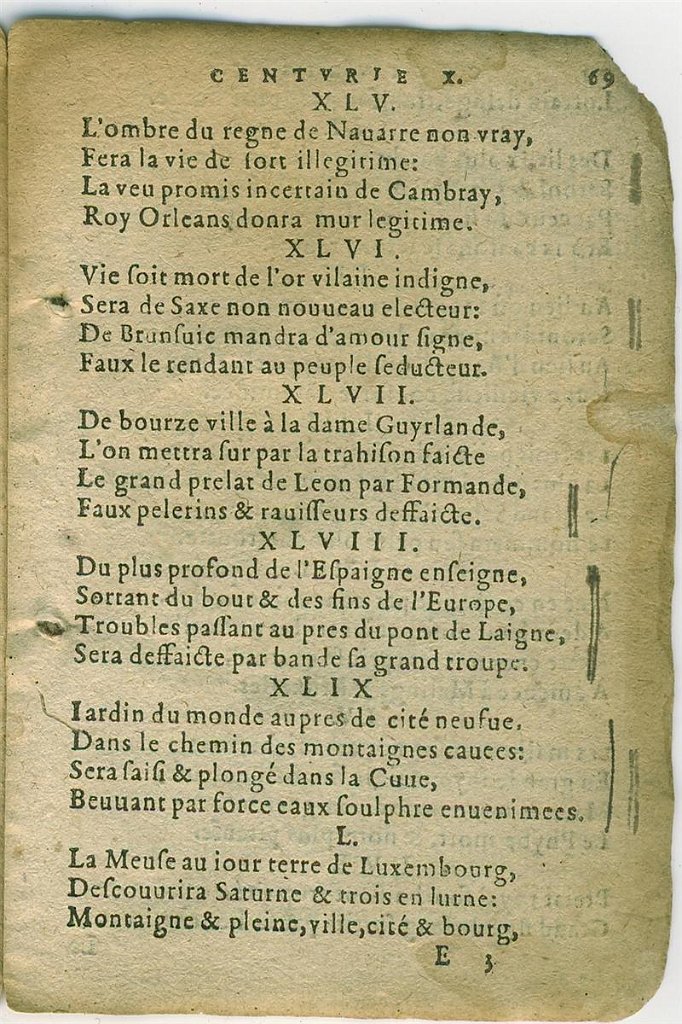 CENTVRIE X. 69
XLV.
L'ombre du regne de Nauarre non vray,
Fera la vie de ſort illegitime:
La veu promis incertain de Cambray,
Roy Orleans donra mur legitime.
XLVI.
Vie ſoit mort de l'or vilaine indigne,
Sera de Saxe non nouueau electeur:
De Brunſuic mandra d'amour ſigne,
Faux le rendant au peuple ſeducteur.
XLVII.
De bourze ville à la dame Guyrlande,
L'on mettra ſur par la trahiſon faicte
Le grand prelat de Leon par Formande,
Faux pelerins & rauiſſeurs deffaicte.
XLVIII.
Du plus profond de l'Eſpaigne enſeigne,
Sortant du bout & des fins de l'Europe,
Troubles paſſant au pres du pont de Laigne,
Sera deffaicte par bande ſa grand troupe.
XLIX
Iardin du monde au pres de cité neufue,
Dans le chemin des montaignes cauees:
Sera ſaiſi & plongé dans la Cuue,
Beuuant par force eaux ſoulphre enuenimees.
L.
La Meuſe au iour terre de Luxembourg,
Deſcouurira Saturne & trois en lurne:
Montaigne & pleine, ville, cité & bourg,
E 3